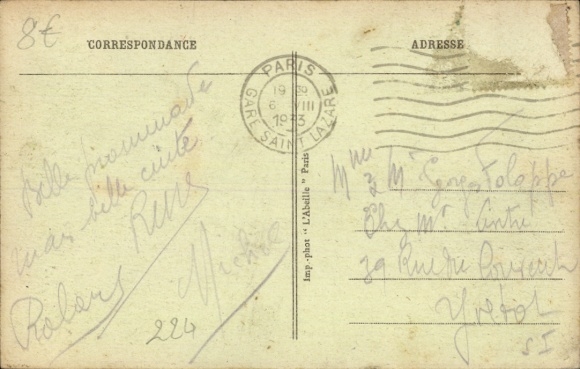 8€
CORRESPONDANCE
ADRESSE
PARIS
19 30
6 VIII
1933
GARE SAINT LAZARE
Belle promenade
mais belle cuite
René
Michel
Roland
224
Imp.-phot "L'Abeille" Paris
Mme & Mr
Chez Mr
39 Rue du
Yvetot
S I